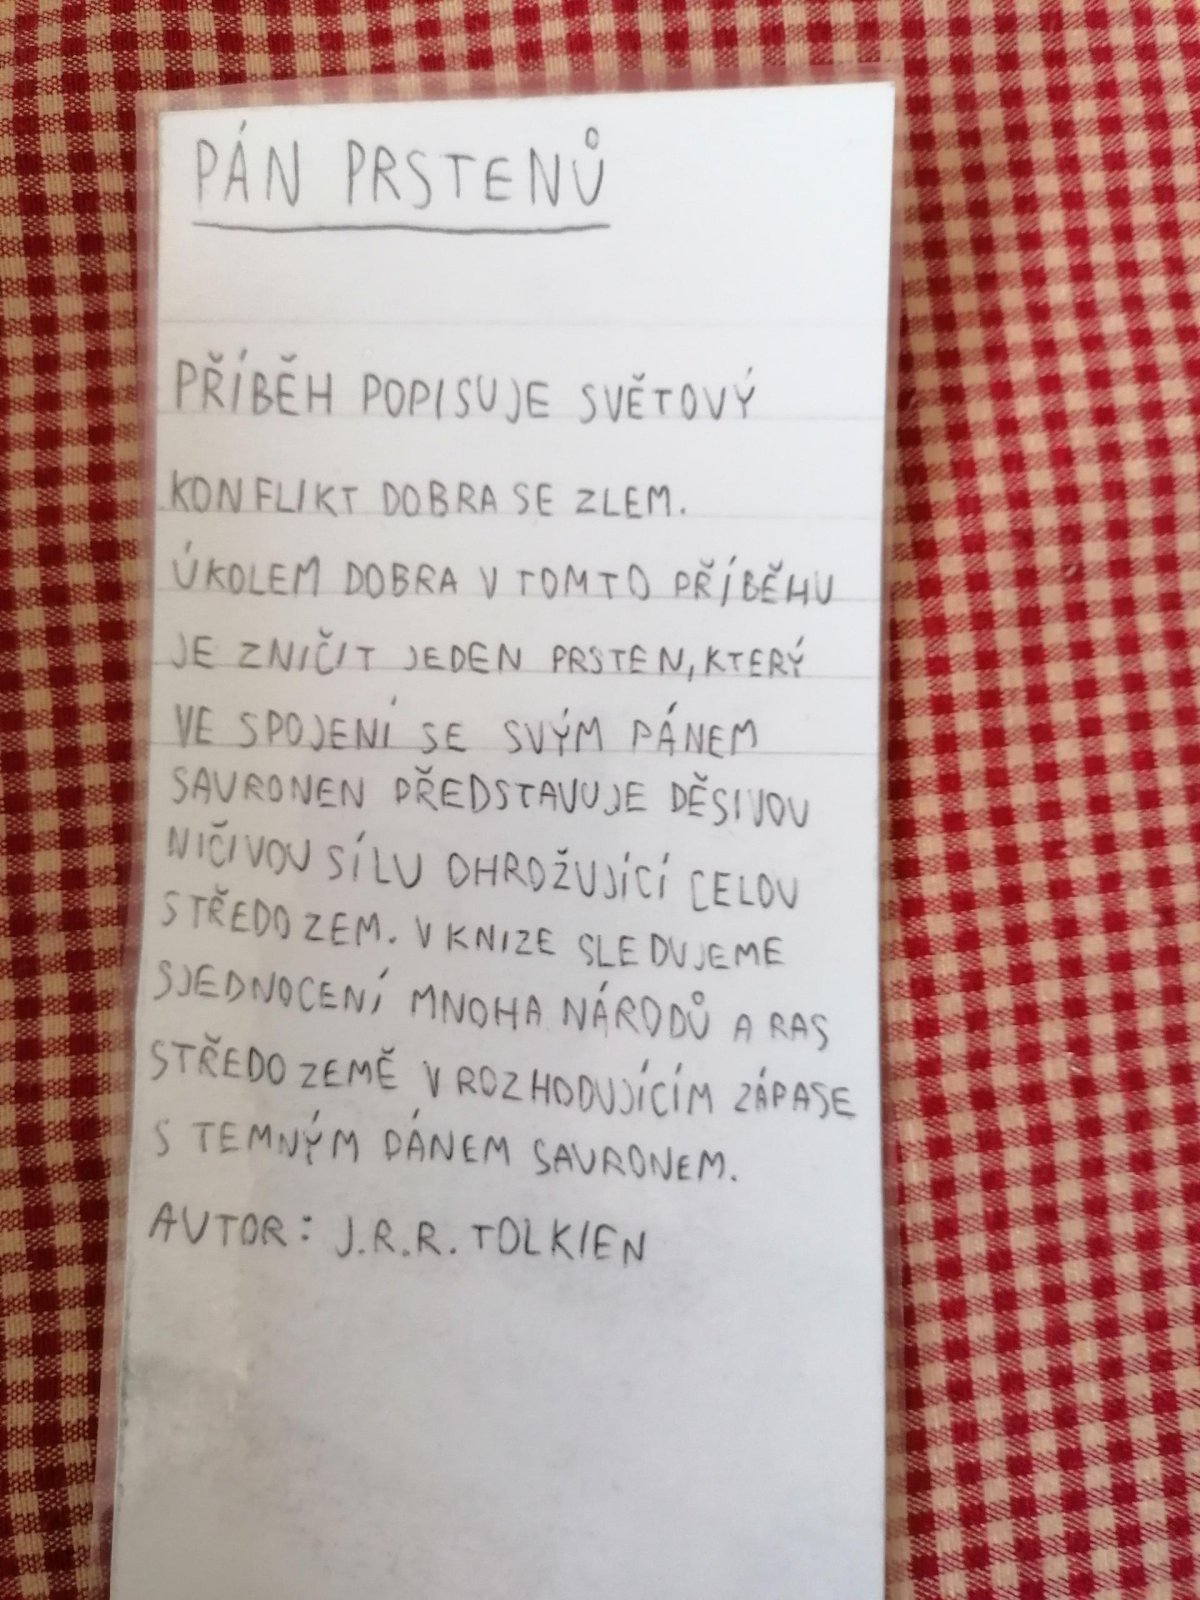 PÁN PRSTENŮ
PŘÍBĚH POPISUJE SVĚTOVÝ
KONFLIKT DOBRA SE ZLEM.
ÚKOLEM DOBRA V TOMTO PŘÍBĚHU
JE ZNIČIT JEDEN PRSTEN, KTERÝ
VE SPOJENÍ SE SVÝM PÁNEM
SAURONEN PŘEDSTAVUJE DĚSIVOU
NIČIVOU SÍLU OHROŽUJÍCÍ CELOU
STŘEDOZEM. V KNIZE SLEDUJEME
SJEDNOCENÍ MNOHA NÁRODŮ A RAS
STŘEDOZEMĚ V ROZHODUJÍCÍM ZÁPASE
S TEMNÝM PÁNEM SAURONEM.
AUTOR: J.R.R. TOLKIEN